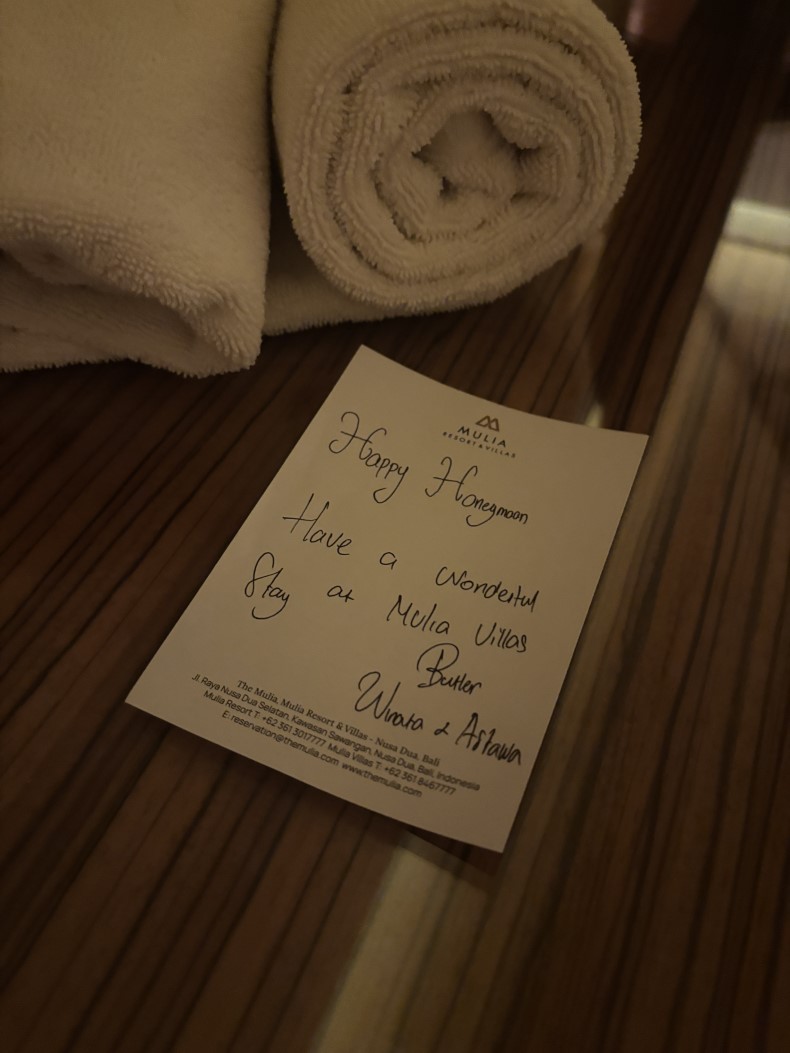 MULIA
RESORT & VILLAS
Happy Honeymoon
Have a Wonderful
Stay at Mulia Villas
Butler
Winata & Astawa
The Mulia, Mulia Resort & Villas - Nusa Dua, Bali
Jl. Raya Nusa Dua Selatan, Kawasan Sawangan, Nusa Dua, Bali, Indonesia
Mulia Resort T: +62 361 3017777 Mulia Villas T: +62 361 8467777
E: reservation@themulia.com www.themulia.com